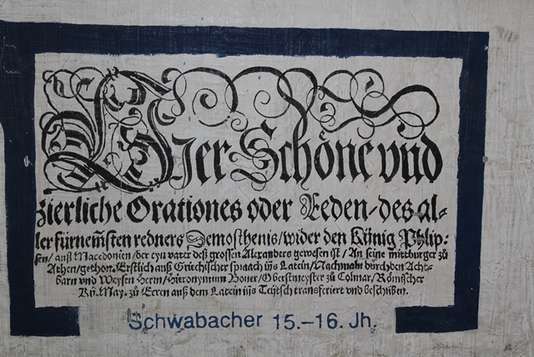 Vier Schöne vnd
zierliche Orationes oder Reden/des al-
ler fürnemsten redners Demosthenis/wider den König Philip-
sen/ auß Macedonien/der eyn vater deß grossen Alexanders gewesen ist/An seine mitburger zů
Athen/gethon. Erstlich auß Griechischer spraach inns Latein/Nachmaln durch den Acht-
barn vnd Weysen Herrn/Hieronymum Boner/Oberstmeyster zů Colmar/Römischer
Kü. May. zů Eeren auß dem Latein inns Teütsch transferiert vnd beschriben.
Schwabacher 15.-16. Jh.